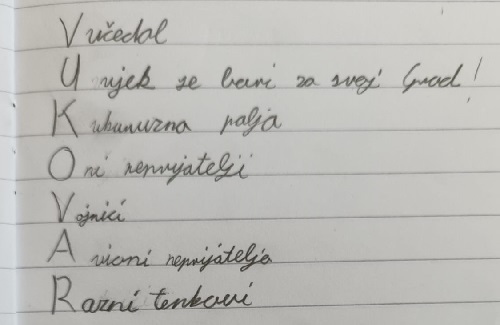 Vučedol
Uvijek se bori za svoj Grad!
Kukuruzna polja
Oni neprijatelji
Vojnici
Avioni neprijatelja
Razni tenkovi